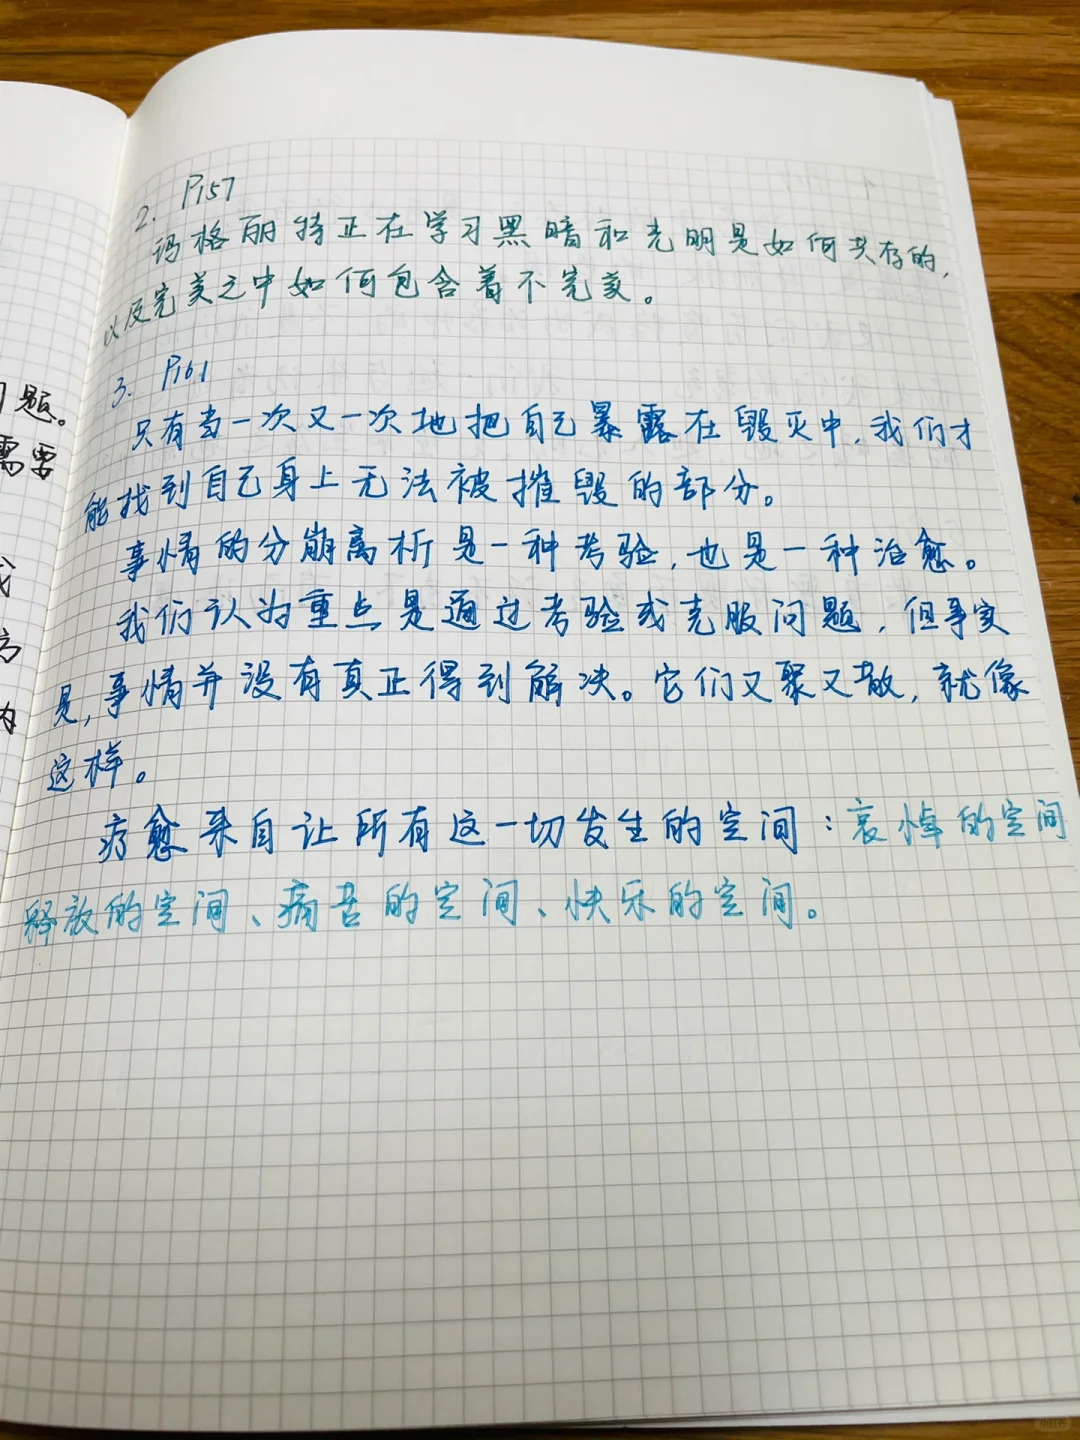 2. P157
玛格丽特正在学习黑暗和光明是如何共存的,
以及完美之中如何包含着不完美。
3. P161
只有当一次又一次地把自己暴露在毁灭中,我们才
能找到自己身上无法被摧毁的部分。
事情的分崩离析是一种考验,也是一种治愈。
我们认为重点是通过考验或克服问题,但事实
是,事情并没有真正得到解决。它们又聚又散,就像
这样。
疗愈来自让所有这一切发生的空间:哀悼的空间
释放的空间、痛苦的空间、快乐的空间。
题。
需要
我
方
内